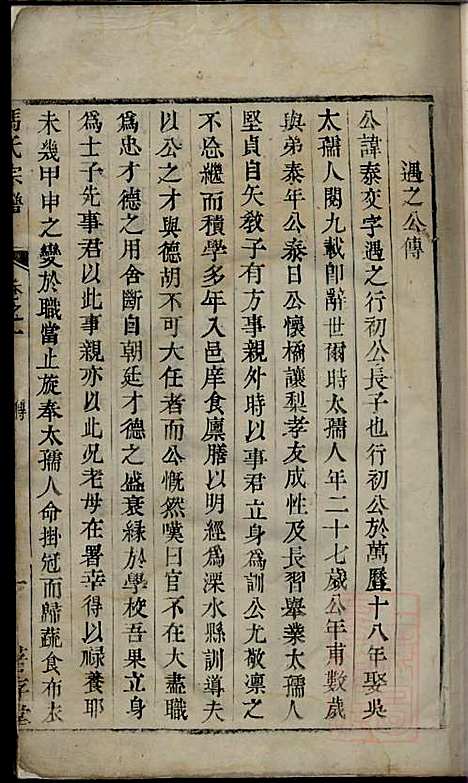 遇之公傳
公諱泰交字遇之行初公長子也行初公於萬曆十八年娶吳
太孺人閱九載卽辭世爾時太孺人年二十七歲公年甫數歲
與弟泰年公泰日公懷橘讓梨孝友成性及長習舉業太孺人
堅貞自矢敎子有方事親外時以事君立身爲訓公尤敬凜之
不怠繼而積學多年入邑庠食廩膳以明經爲溧水縣訓導夫
以公之才與德胡不可大任者而公慨然嘆曰官不在大盡職
爲忠才德之用舍斷自朝廷才德之盛衰緣於學校吾果立身
爲士子先事君以此事親亦以此況老母在署幸得以祿養耶
未幾甲申之變於職當止旋奉太孺人命掛冠而歸蔬食布衣
馮氏宗譜
卷之一
傳
一